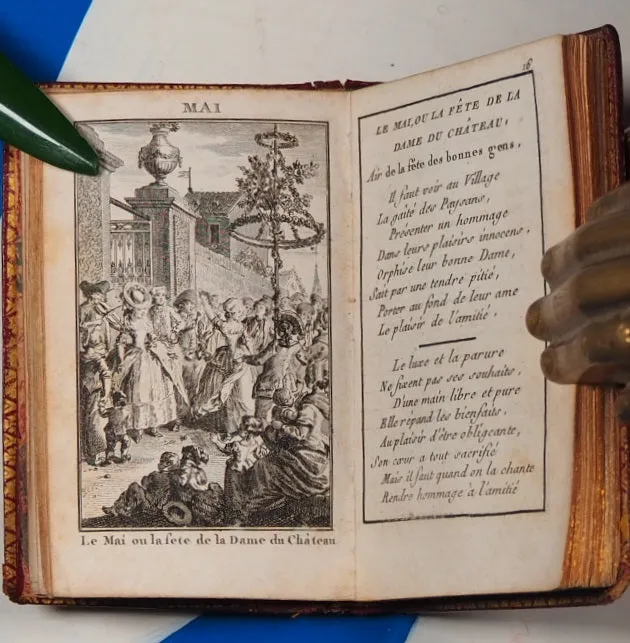 MAI
Le Mai ou la fete de la Dame du Château
16
LE MAI, OU LA FÊTE DE LA
DAME DU CHÂTEAU,
Air de la fête des bonnes gens,
Il faut voir au Village
La gaité des Paysans,
Présenter un hommage
Dans leurs plaisirs innocens,
Orphise leur bonne Dame,
Sait par une tendre pitié,
Porter au fond de leur ame
Le plaisir de l'amitié,
Le luxe et la parure
Ne fixent pas ses souhaits,
D'une main libre et pure
Elle répand les bienfaits,
Au plaisir d'être obligeante,
Son cœur a tout sacrifié
Mais il faut quand on la chante
Rendre hommage à l'amitié